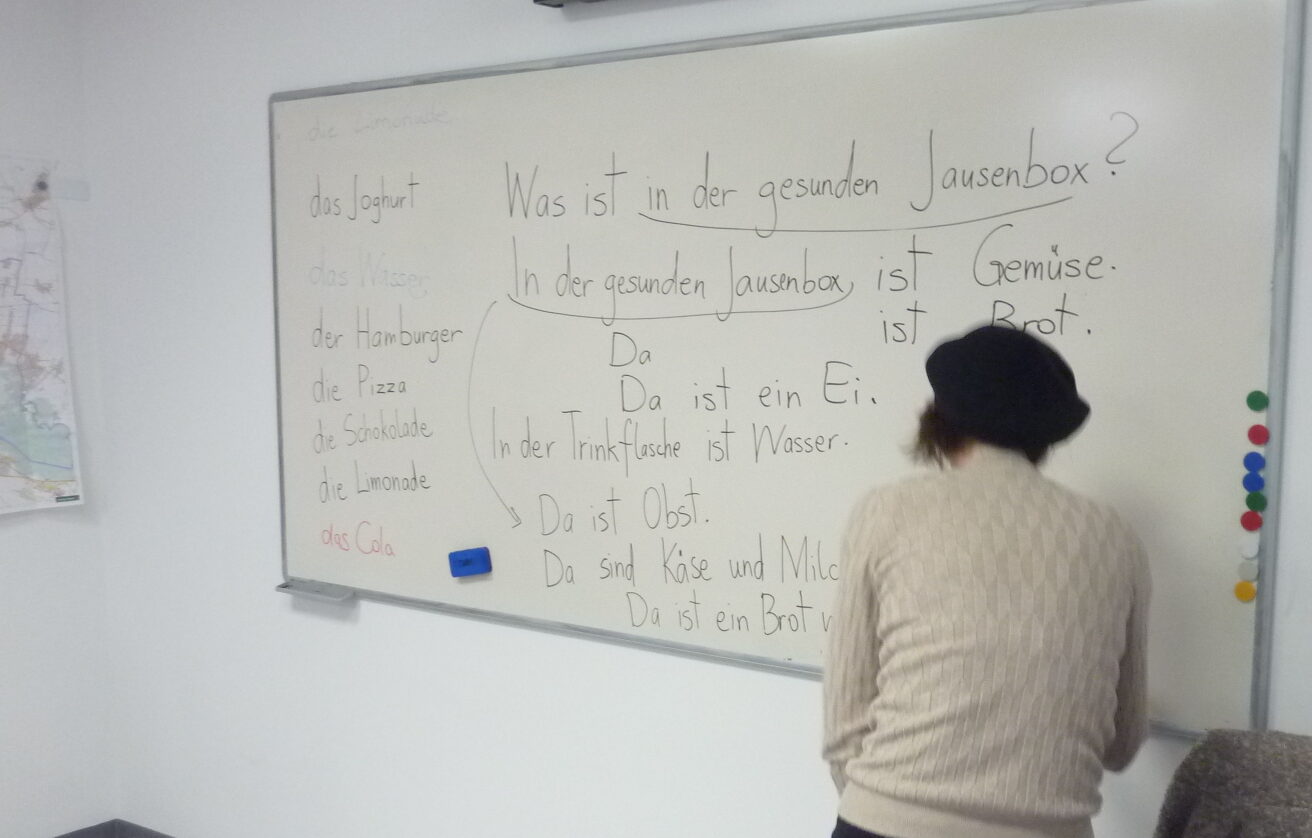 die Limonade
das Joghurt
das Wasser
der Hamburger
die Pizza
die Schokolade
die Limonade
das Cola
Was ist in der gesunden Jausenbox?
In der gesunden Jausenbox, ist Gemüse.
ist Brot.
Da
Da ist ein Ei.
In der Trinkflasche ist Wasser.
Da ist Obst.
Da sind Käse und Milc
Da ist ein Brot